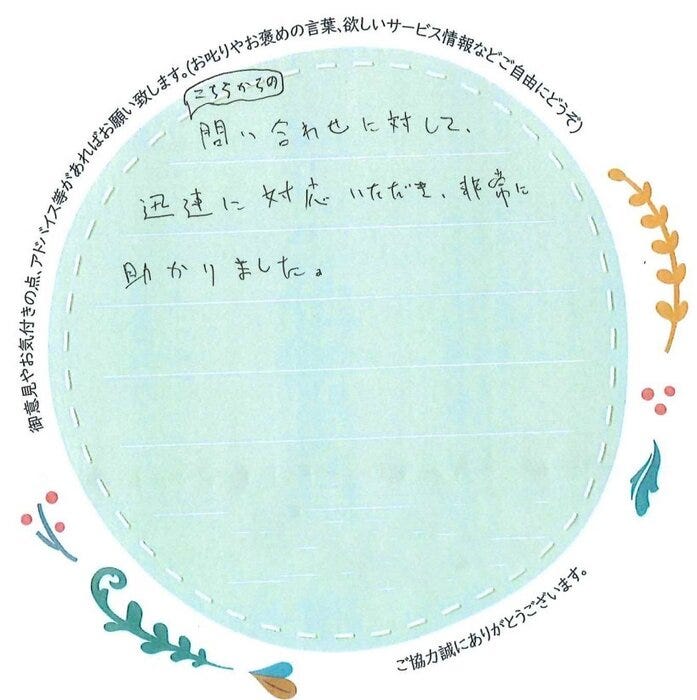 御意見やお気付きの点、アドバイス等があればお願い致します。(お叱りやお褒めの言葉、欲しいサービス情報などご自由にどうぞ)
こちらからの
問い合わせに対して、
迅速に対応いただき、非常に
助かりました。
ご協力誠にありがとうございます。